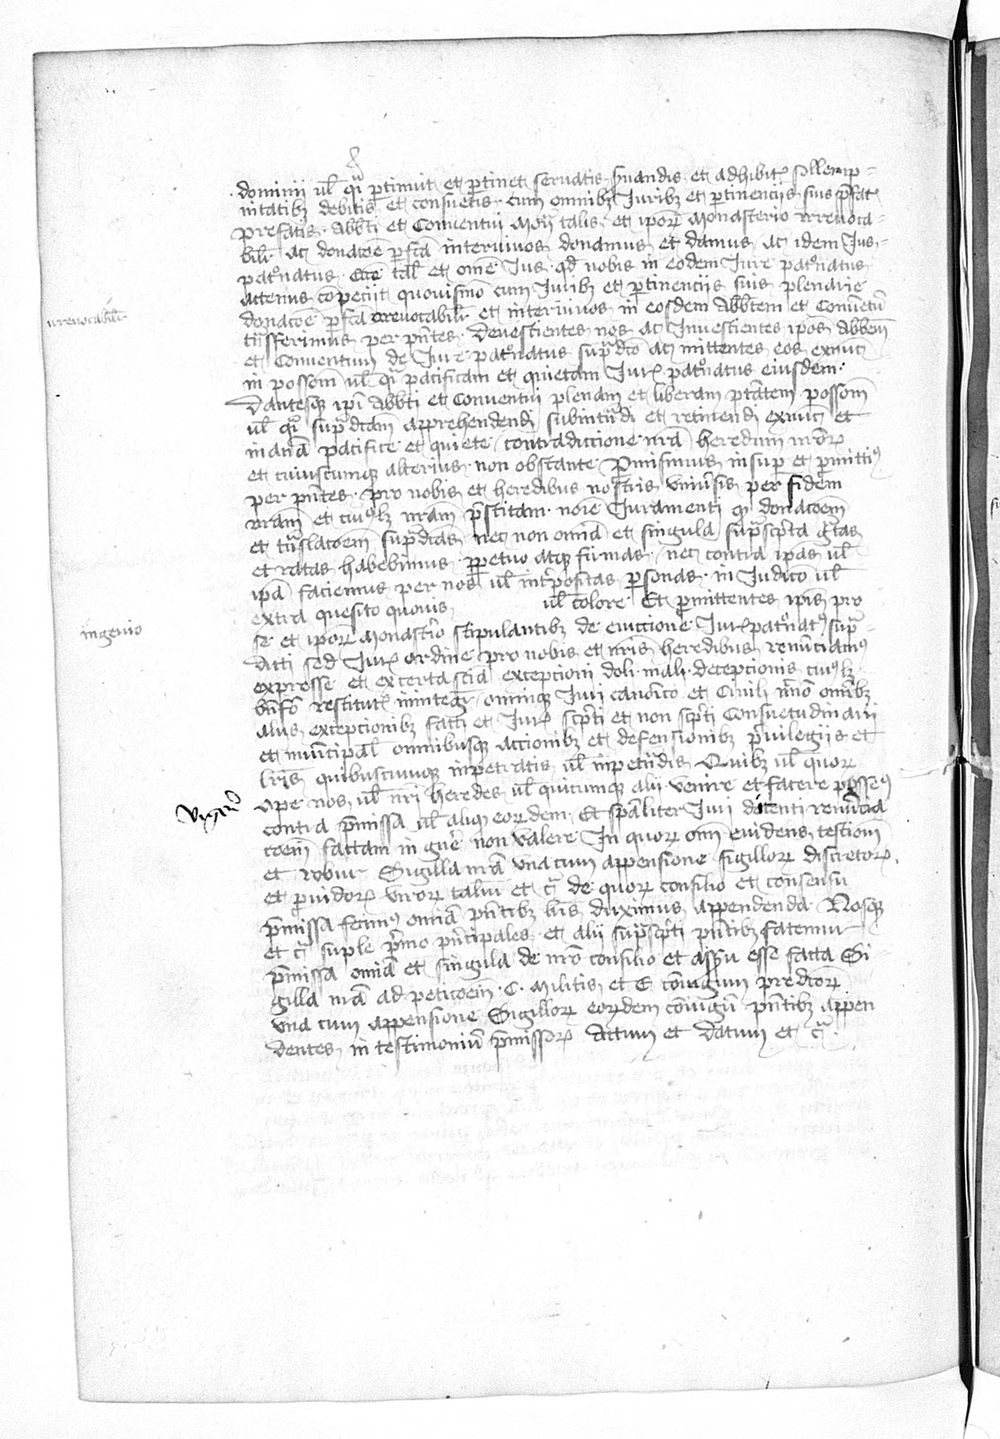 dominii ul' qsi ptinuit et ptinet servatis suandis et adhibit' sollemp-
nitatibz debitis et consuetis cum omnibz Juribz et ptinenciis suis
prefatis Abbti et Conventui Mon talis et ipor Monasterio irrevoca-
bilr ac donacoe pfca intervivos donamus et damus ac idem Jus
patonatus tal' et ome Jus qd nobis in eodem Jure patonatus
actenus copeciit quovismo cum Juribz et ptinenciis suis plenarie
irrevocabilr
donacoe pfca irrevocabilr et intervivos in eosdem Abbtem et Conventu
tnsferimus per pntes Devestientes nos ac Investientes ipos Abbem
et Conventum de Jure patonatus supdco ac mittentes eos exnuc
in possom ul' qsi pacificam et quietam Jur' patonatus eiusdem
Dantesqz ipi Abbti et Conventui plenam et liberam ptatem possom
ul' qsi supdcam apprehendendi subintndi et retinendi exnuc et
inanea pacifice et quiete contradiccione nra heredum nror
et cuiuscumqz alterius non obstante Pmisimus insup et pmittim9
per pntes pro nobis et heredibus nostris univsis per fidem
nram et cuiuslz nram pstitam noie Juramenti qd donacoem
et tnslacoem supdcas nec non omia et singula supscpta gtas
et ratas habebimus ppetuo atqz firmas nec contra ipas ul'
ipa faciemus per nos ul' intpositas psonas in Judico ul'
extra quesito quovis ul' colore Et pmittentes ipis pro
ingenio
se et ipor Monastio stipulantibz de eviccione Jur' patonat9 sup-
dicti sed Jur' ordine pro nobis et nris heredibus renunciam9
expresse et excerta scia excepcioni doli mali decepcionis cuiuslz
bnfo restitut' inintegr omniqz Juri canoico et Civili nno omibz
aliis excepcionibz facti et Jur' scpti et non scpti Consuetudinarii
et municipal' omnibusqz accionibz et defensionibz pvilegiis et
lris quibuscumqz inpetratis ul' inpetndis Quibz ul' quor
ope nos ul' nri heredes ul' quicumqz alii venire et facere possem9
contra pmissa ul' aliqz eordem Et spaliter Juri dicenti renuncia
coem factam in gne non valere In quor oim evidens testiom
et robur Sigilla nra una cum appensione sigillor discretor
et pvidor viror taliu et c de quor consilio et consensu
pmissa fecim9 omia pntibz lris duximus appendenda Nosqz
et c suple pmo pncipales et alii supscpti pntibz fatemur
pmissa omia et singula de nro consilio et assensu esse facta Si
gilla nra ad peticoem C. Militis et E coniugum predcor
una cum appensione Sigillor eordem coniugu pntibz appen
dentes in testimoniu pmissor Actum et Datum et c